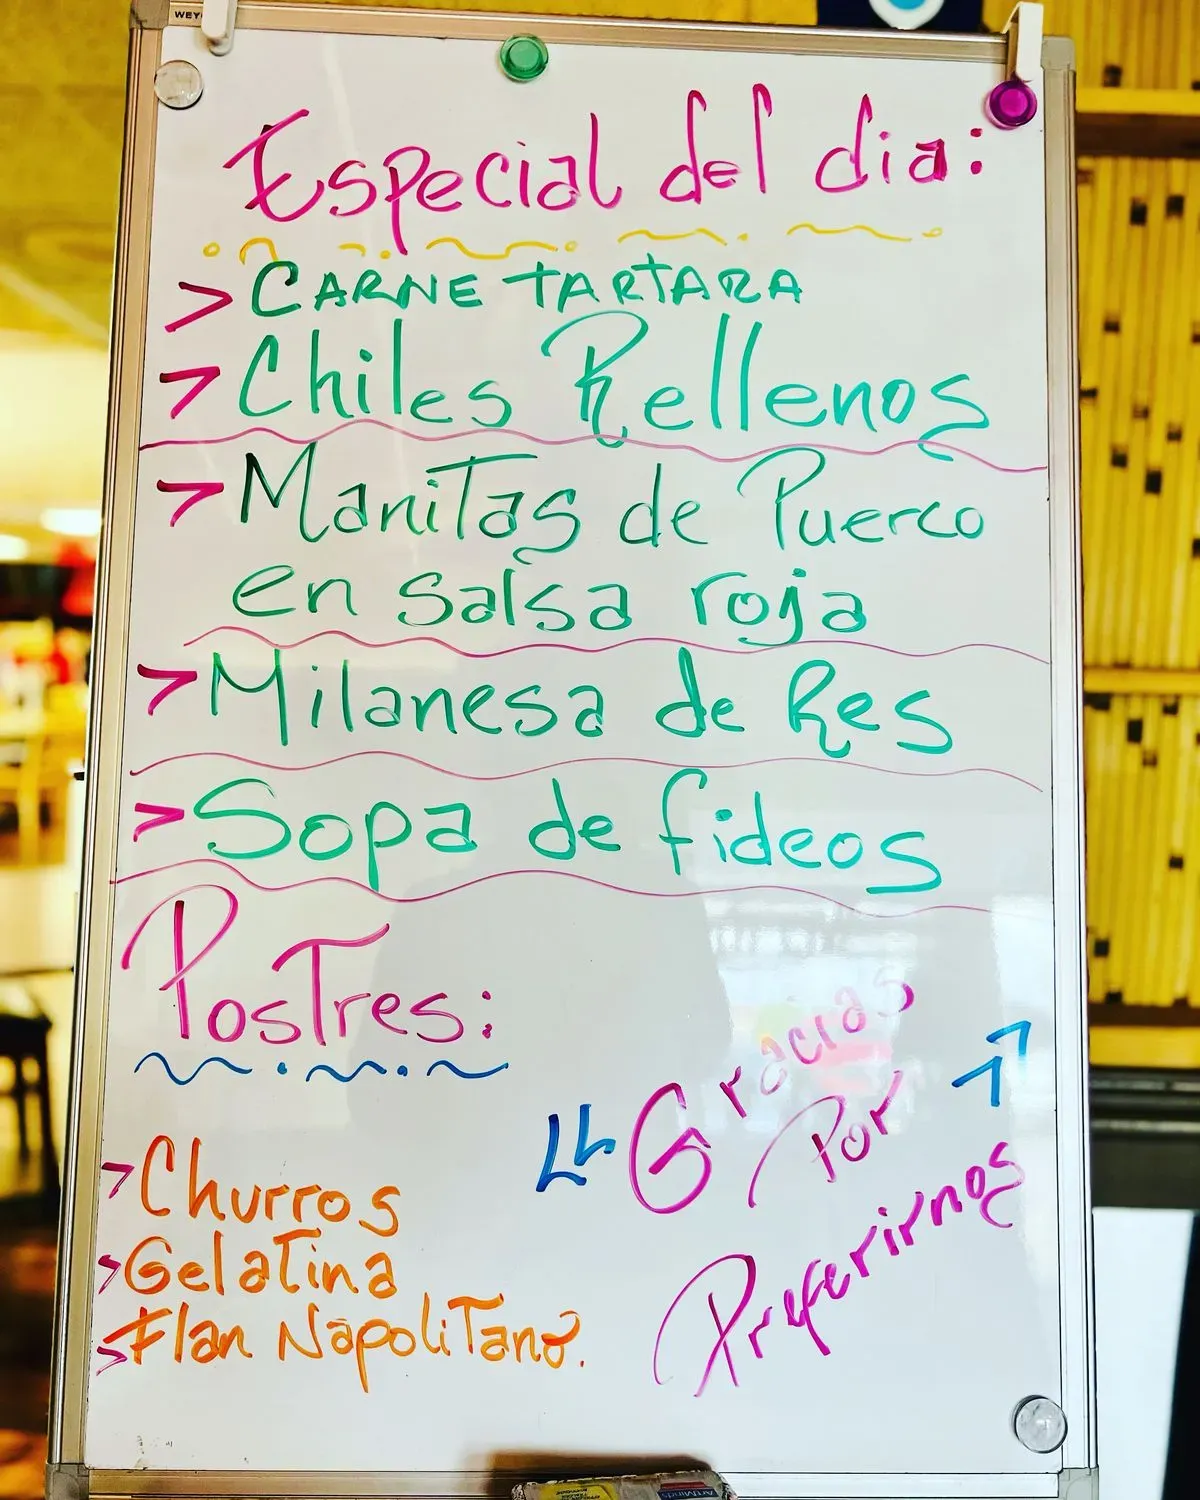 Especial del dia:
> CARNE TARTARA
> Chiles Rellenos
> Manitas de Puerco
en salsa roja
> Milanesa de Res
> Sopa de fideos
Postres:
> Churros
> Gelatina
> Flan Napolitano.
Gracias
Por
Preferirnos